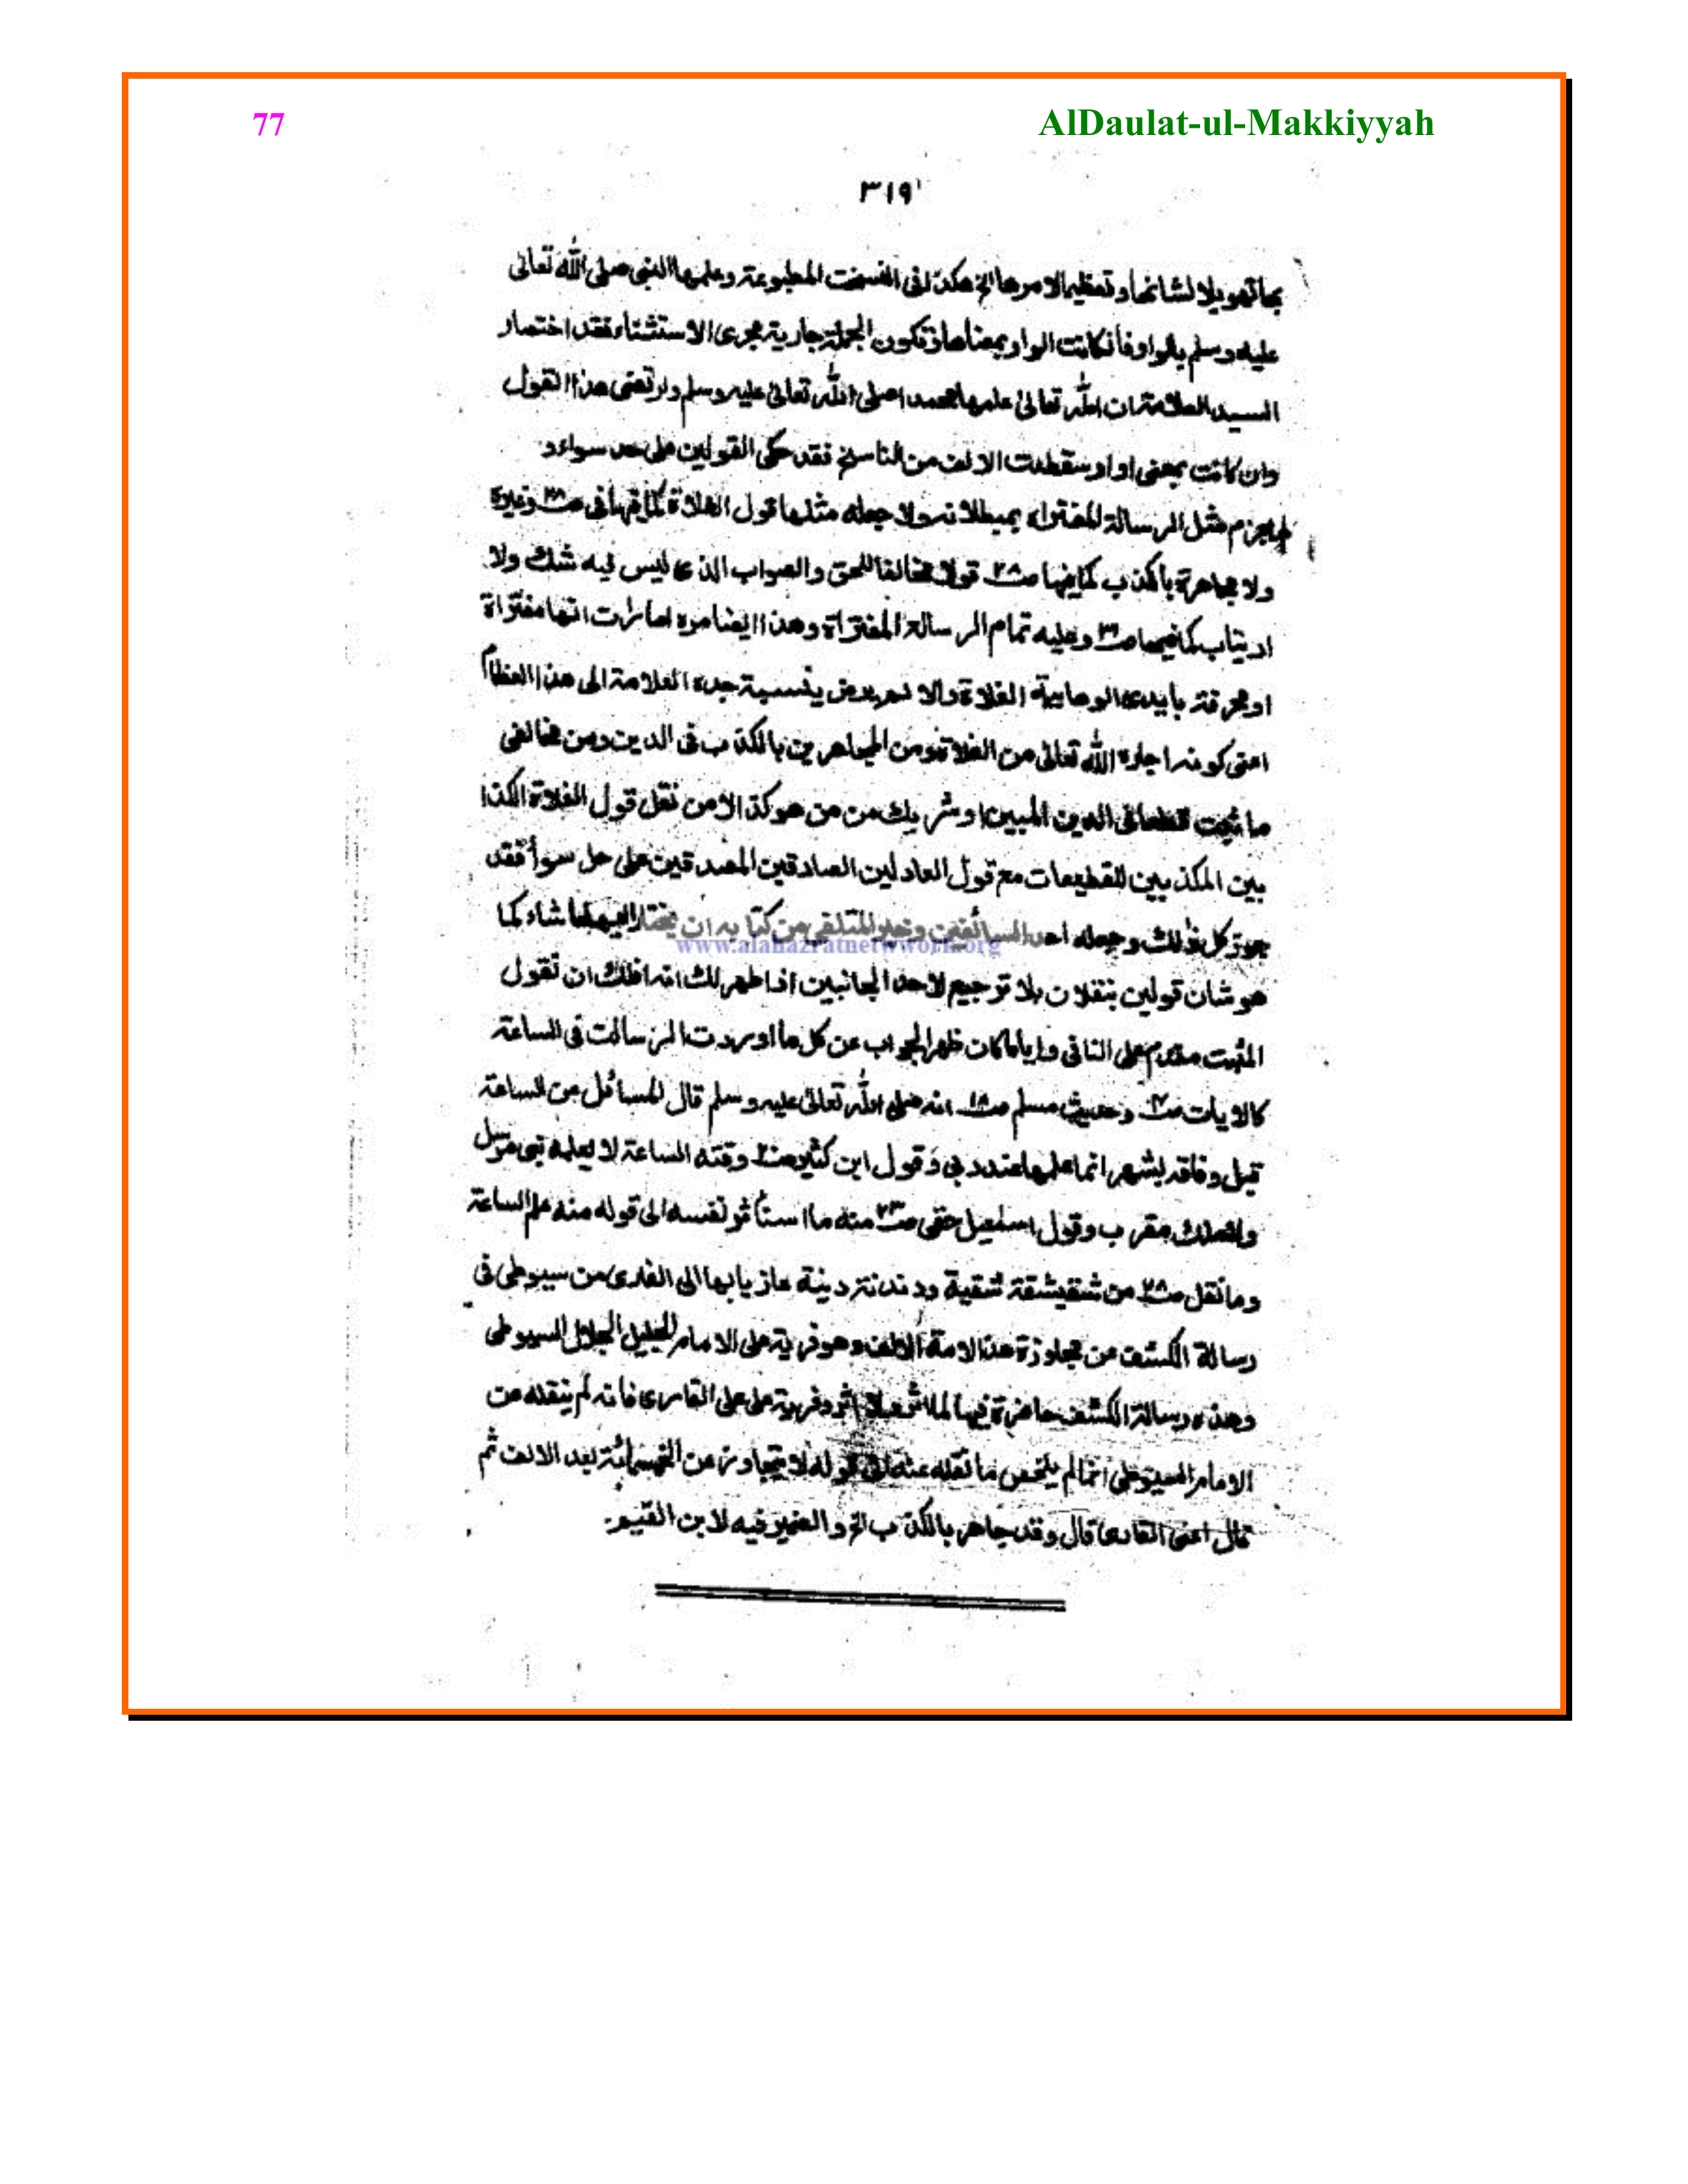 77
AlDaulat-ul-Makkiyyah
٣١٩
بها تهويلا لشانها وتعظيما لامرها الخ هكذا فى النسخة المطبوعة وعلمها النبى صلى الله تعالى
عليه وسلم بالواو فأن كانت الواو بمعناها وتكون الجملة جارية مجرى الاستثناء فقد اختار
السيد العلامة ان الله تعالى علمها محمدا صلى الله تعالى عليه وسلم وارتضى هذا القول
وان كانت بمعنى او او سقطت الالف من الناسخ فقد حكى القولين على حد سواء و
لم يجزم مثل الرسالة المفتراة ببطلانه ولا جعله مثلها قول الغلاة كما فيها فى ص وغيره
ولا مجاهرة بالكذب كما فيها ص٢٨ قولا مخالفا للحق والصواب الذى ليس فيه شك ولا
ارتياب كما فيها ص٣ وعليه تمام الرسالة المفتراة وهذا ايضا من امارات انها مفتراة
او محرفة بايدى الوهابية الغلاة والا لم يرض بنسبة جده العلامة الى هذا العظائم
اعنى كونه اجاره الله تعالى من الغلاة ومن المجاهرين بالكذب فى الدين ومن مخالفى
ما ثبت قطعا فى الدين المبين او شريك من هو كذا لان من نقل قول الغلاة الكذا
بين المكذبين للقطيعات مع قول العادلين الصادقين المصدقين على حد سوأ فقد
جوز كل ذلك وجعله احد السائغين وخير المتلقى من كتابه ان يختار ايهما شاء كما
www.alahazratnetwork.org
هو شان قولين ينقلان بلا ترجيح لاحد الجانبين اذا ظهر لك انه اظلك ان تقول
المثبت مقدم على النافى واياما كان ظهر الجواب عن كل ما اوردت الرسالة فى الساعة
كالايات ص وحديث مسلم ص١٨ انه صلى الله تعالى عليه وسلم قال للسائل عن الساعة
قبل وفاته بشهر انما علمها عند ربى وقول ابن كثير ص٢ وقته الساعة لا يعلمه نبى مرسل
ولا ملك مقرب وقول اسمعيل حقى ص٢٣ منه ما استأثر لنفسه الى قوله منه علم الساعة
وما نقل ص٢٨ من شقيشقة شقية ودندنة دينة عازيا بها الى القارى من سيوطى فى
رسالة الكشف عن مجاوزة هذه الامة الالف وهو فرية على الامام الجليل الجلال السيوطى
وهذه رسالة الكشف حاضرة فيها لها اثر وفرية على على القارى فانه لم ينقله عن
الامام السيوطى انما لم يلخص ما نقله عنه الى قوله لا يتجاوز عن الخمسمائة بعد الالف ثم
قال اعنى القارى قال وقد جاهر بالكذب الخ والضمير فيه لابن القيم.